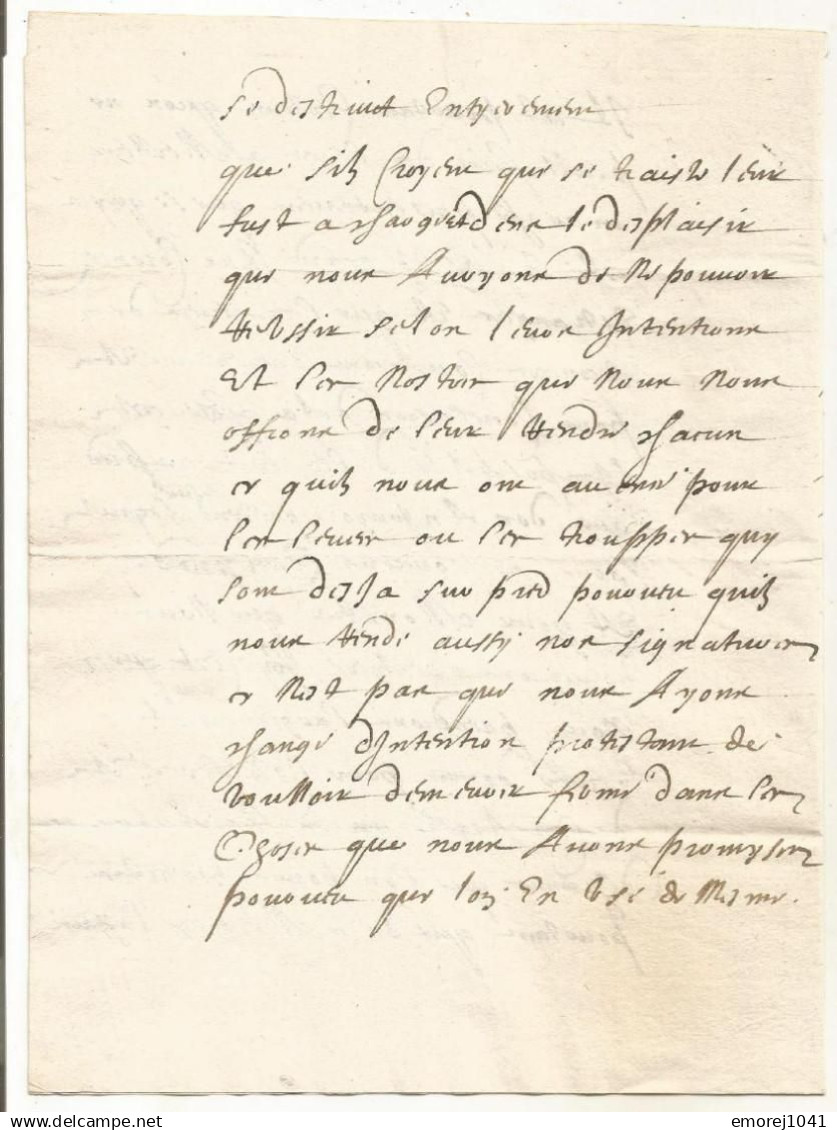 se destruit Entyerement
que silz Croyent que se traisté leur
fust a charge et dem le desplaisir
que nous Auvyons de Ne pouvoir
Reussir selon leurs Intentions
Et les Nostres que Nous Nous
offrons de leur Rendre chacun
ce quilz nous ont avencé pour
les lever ou les trouppes quy
sont desja sur pied pourveu quilz
nous Rende aussy nos signatures
ce Nest pas que nous Ayons
changé dIntention protestant de
voulloir demeurer ferme dans les
Choses que nous Avons promyses
pourveu que lon En Usé de Mesme.
emorej1041